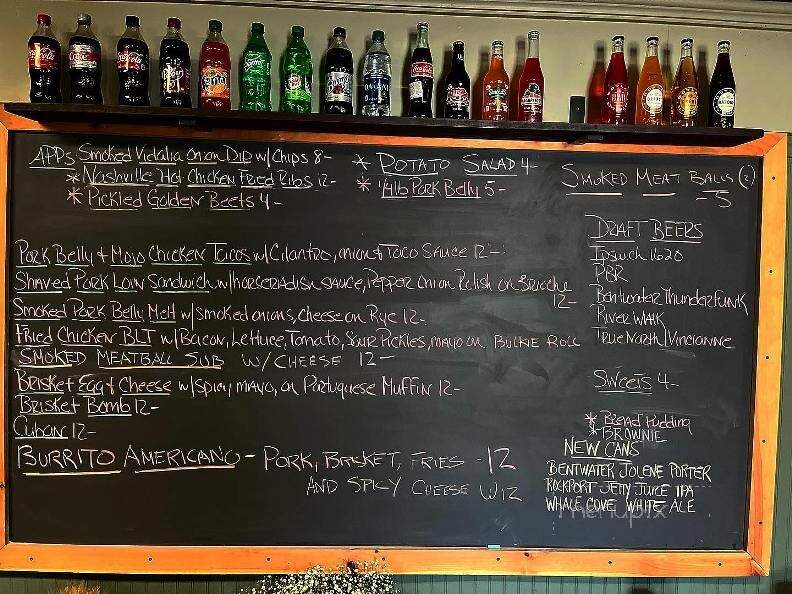 APPs Smoked Vidalia Onion Dip w/ Chips 8-
* Nashville Hot Chicken Fried Ribs 12-
* Pickled Golden Beets 4-
* POTATO SALAD 4-
* 1/4 lb Pork Belly 5-
SMOKED MEAT BALLS (2)
-5
Pork Belly & Mojo Chicken Tacos w/ Cilantro, onion & Taco Sauce 12-
Shaved Pork Loin Sandwich w/ horseradish sauce, Pepper onion Relish on Brioche
12-
Smoked Pork Belly Melt w/ smoked onions, cheese on Rye 12-
Fried Chicken BLT w/ Bacon, Lettuce, Tomato, Sour Pickles, mayo on BULKIE ROLL
SMOKED MEATBALL SUB W/ CHEESE 12-
Brisket Egg & Cheese w/ spicy mayo, on Portuguese Muffin 12-
Brisket Bomb 12-
Cuban 12-
BURRITO AMERICANO - PORK, BRISKET, FRIES - 12
AND SPICY CHEESE WIZ
DRAFT BEERS
Ipswich 1620
PBR
Bentwater Thunder Funk
River Walk
True North/
Sweets 4-
* Bread Pudding
* BROWNIE
NEW CANS
BENTWATER JOLENE PORTER
ROCKPORT JETTY JUICE IPA
WHALE COVE WHITE ALE
menupix